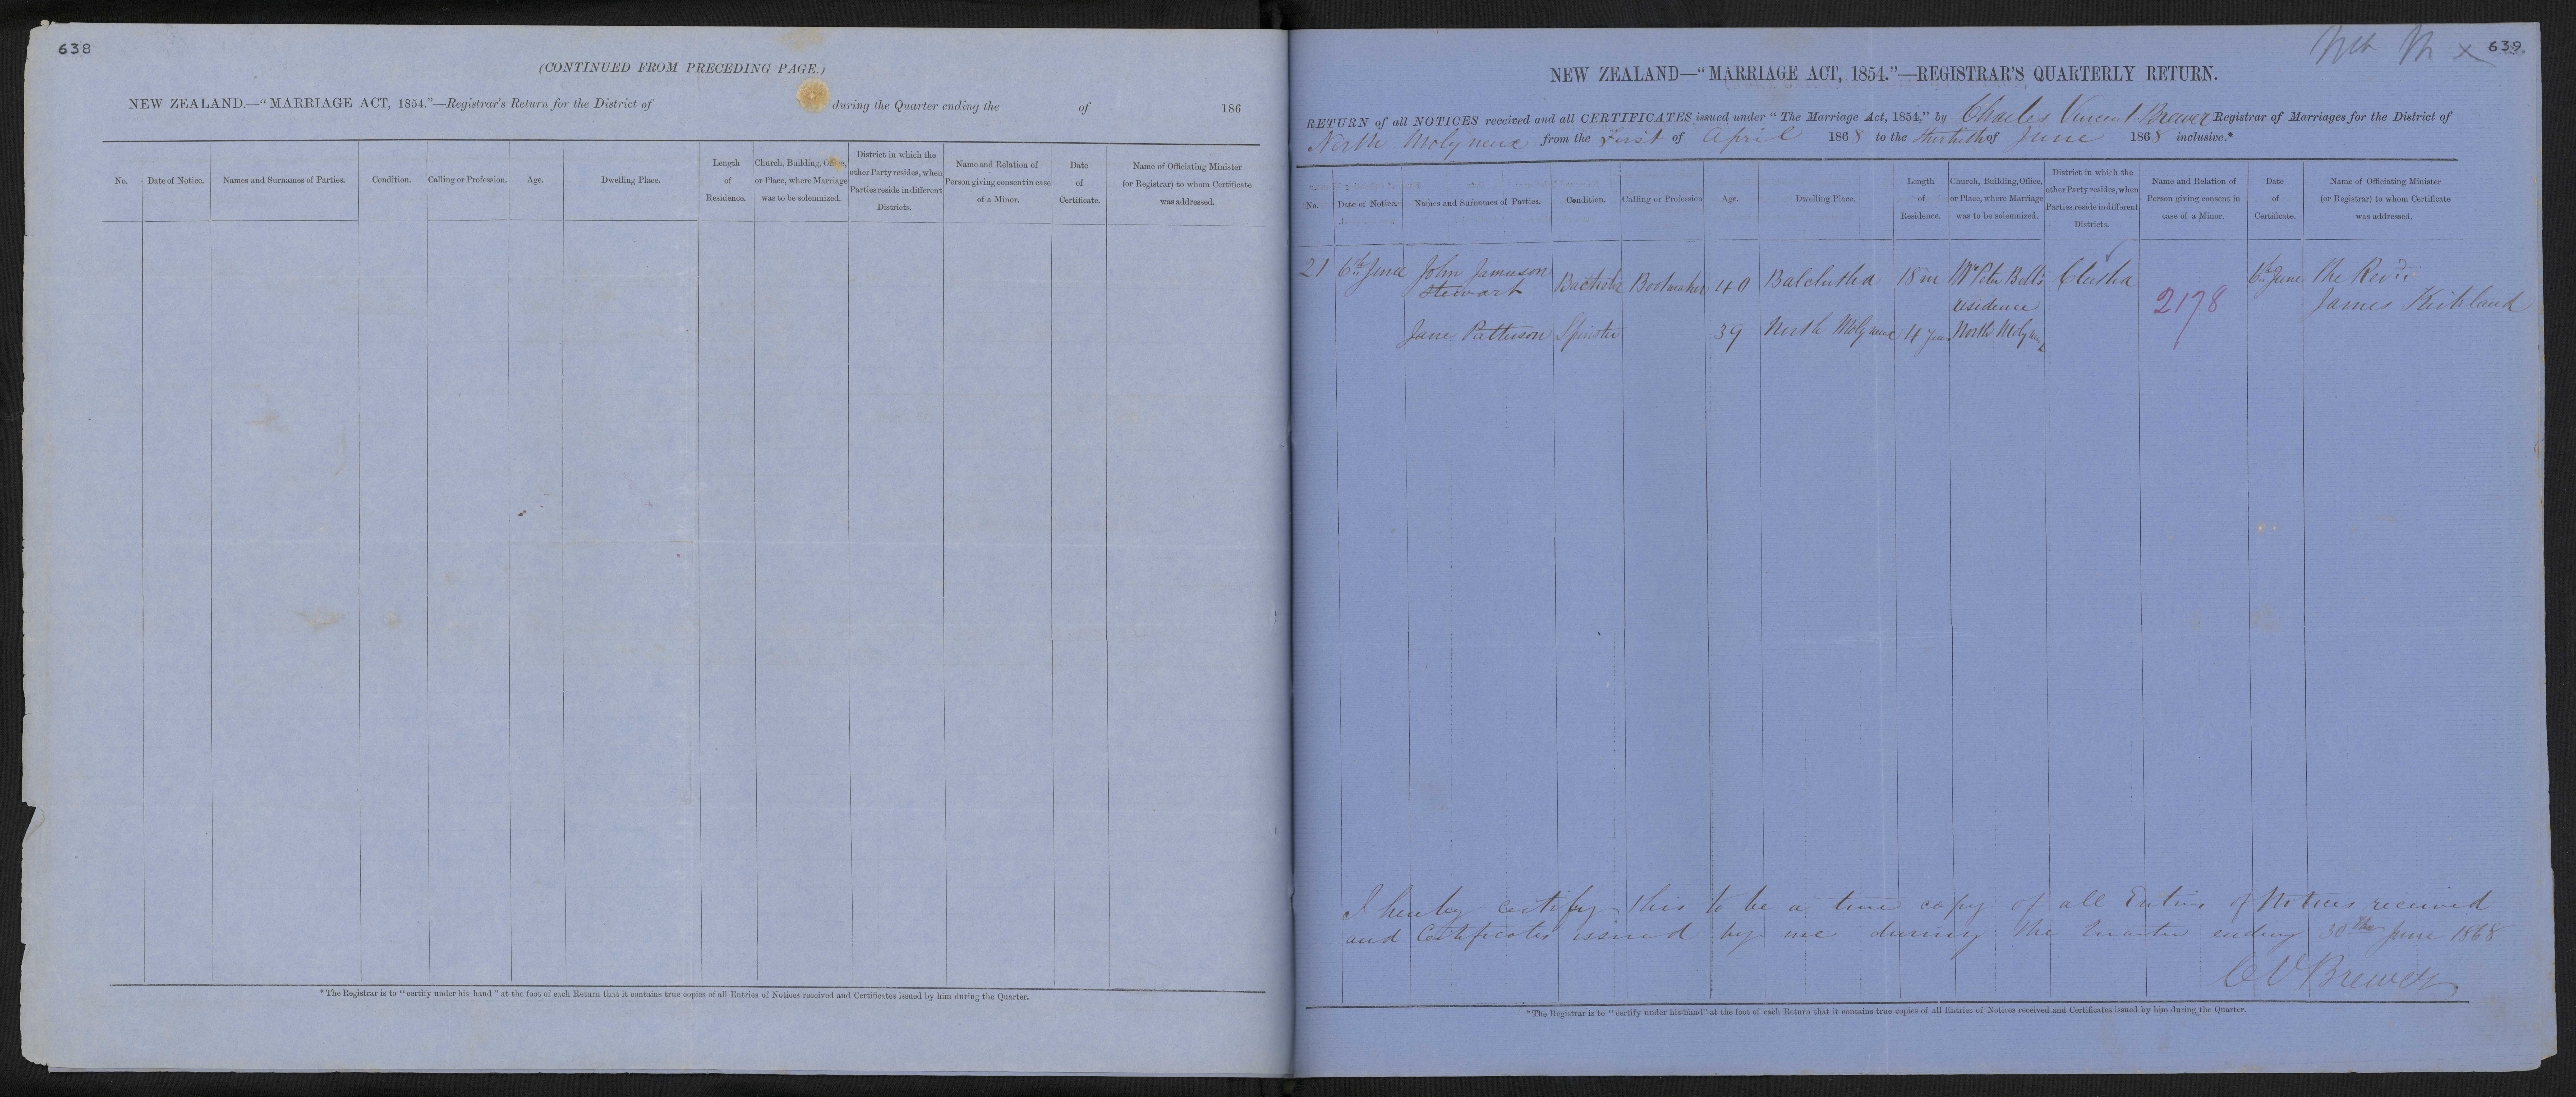 638
(CONTINUED FROM PRECEDING PAGE.)
NEW ZEALAND.—"MARRIAGE ACT, 1854."—Registrar's Return for the District of during the Quarter ending the of 186
No. Date of Notice. Names and Surnames of Parties. Condition. Calling or Profession. Age. Dwelling Place. Length of Residence. Church, Building, Office, or Place, where Marriage was to be solemnized. District in which the other Party resides, when Parties reside in different Districts. Name and Relation of Person giving consent in case of a Minor. Date of Certificate. Name of Officiating Minister (or Registrar) to whom Certificate was addressed.
*The Registrar is to "certify under his hand" at the foot of each Return that it contains true copies of all Entries of Notices received and Certificates issued by him during the Quarter.
639
NEW ZEALAND—"MARRIAGE ACT, 1854."—REGISTRAR'S QUARTERLY RETURN.
RETURN of all NOTICES received and all CERTIFICATES issued under "The Marriage Act, 1854," by Charles Vincent Brewer Registrar of Marriages for the District of
North Molyneux from the First of April 1868 to the thirtieth of June 1868 inclusive.*
No. Date of Notice. Names and Surnames of Parties. Condition. Calling or Profession Age. Dwelling Place. Length of Residence. Church, Building, Office, or Place, where Marriage was to be solemnized. District in which the other Party resides, when Parties reside in different Districts. Name and Relation of Person giving consent in case of a Minor. Date of Certificate. Name of Officiating Minister (or Registrar) to whom Certificate was addressed.
21 6th June John Jamieson Bachelor Bootmaker 40 Balclutha 18 m Mr Peter Bell's Clutha 6th June The Revd.
Stewart residence 2178 James Kirkland
Jane Patterson Spinster 39 North Molyneux 4 yrs North Molyneux
I hereby certify this to be a true copy of all Entries of Notices received
and Certificates issued by me during the Quarter ending 30th June 1868
C V Brewer
*The Registrar is to "certify under his hand" at the foot of each Return that it contains true copies of all Entries of Notices received and Certificates issued by him during the Quarter.